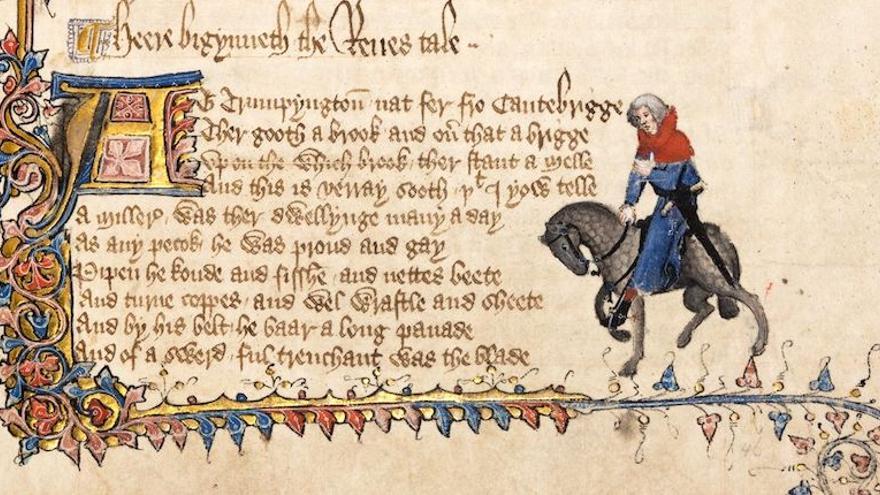 Heere bigynneth the Reues tale
At Trumpyngton nat fer fro Cantebrigge
Ther gooth a brook and on that a brigge
Vpon the which brook ther stant a melle
And this is verray sooth þt I yow telle
A miller was ther dwellynge many a day
As any pecok he was proud and gay
Pipen he koude and fisshe and nettes beete
And turne coppes and wel wrastle and sheete
And by his belt he baar a long panade
And of a swerd ful trenchant was the blade